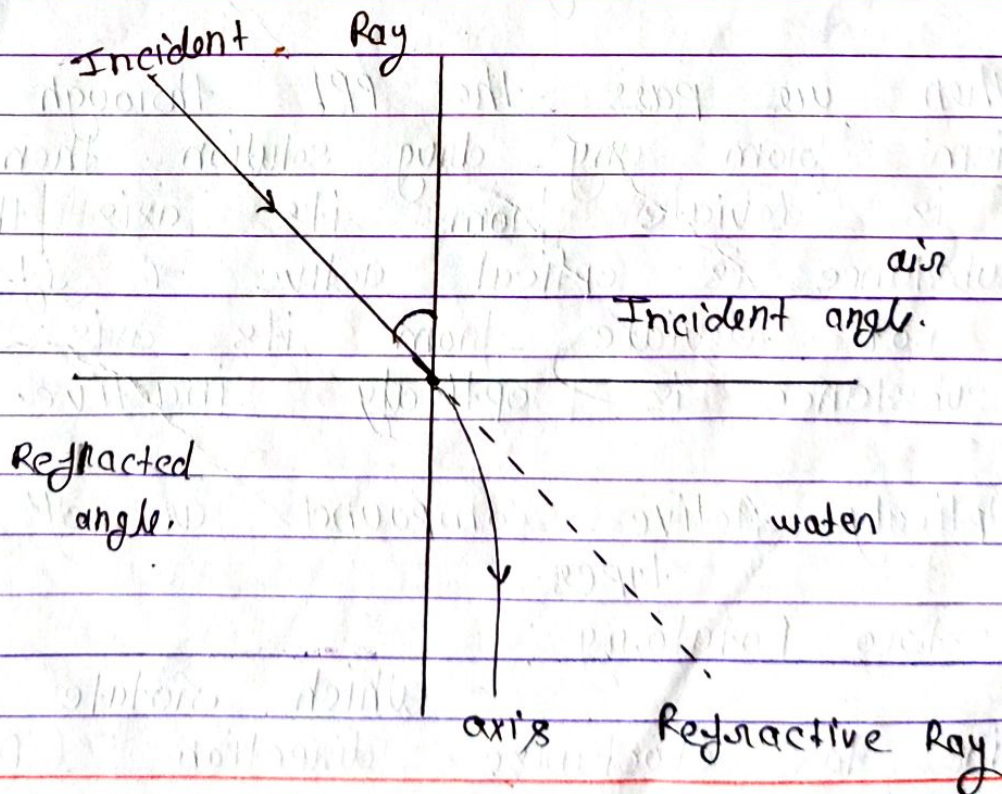 Incident Ray
air
Incident angle.
Refracted
angle.
water
axis Refractive Ray